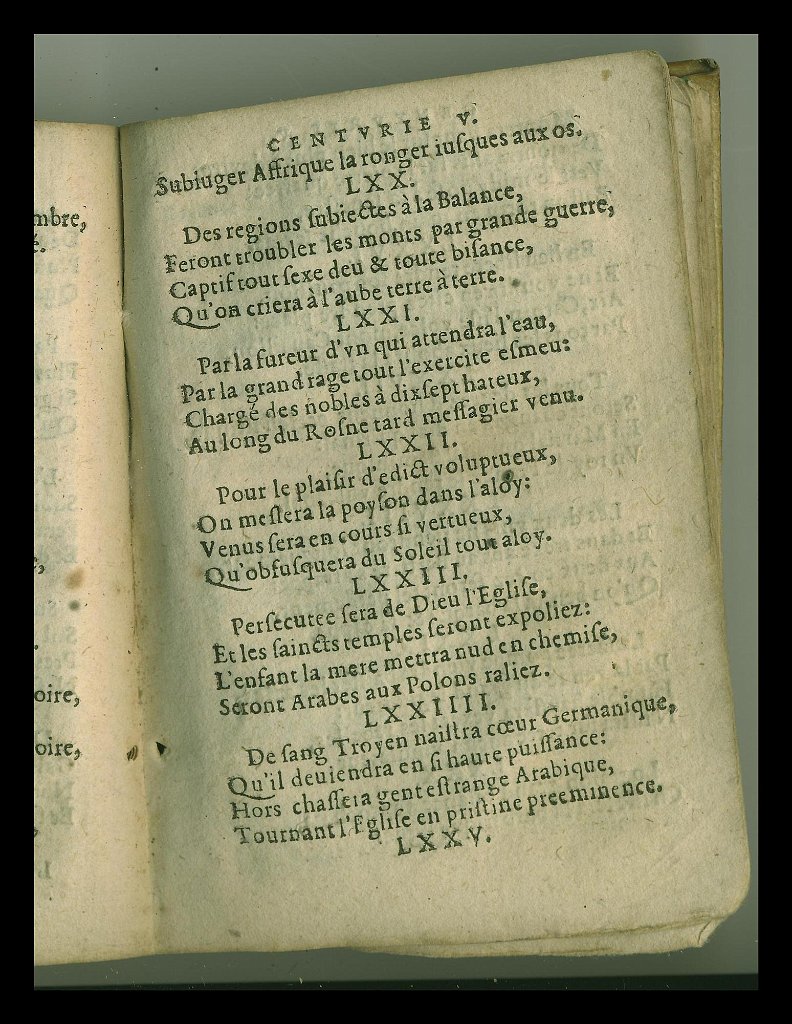 mbre,
é.
oire,
oire,
CENTVRIE V.
Subiuger Affrique la ronger iuſques aux os.
LXX.
Des regions ſubiectes à la Balance,
Feront troubler les monts par grande guerre,
Captif tout ſexe deu & toute biſance,
Qu'on criera à l'aube terre à terre.
LXXI.
Par la fureur d'vn qui attendra l'eau,
Par la grand rage tout l'exercite eſmeu:
Chargé des nobles à dixſept hateux,
Au long du Roſne tard meſſagier venu.
LXXII.
Pour le plaiſir d'edict voluptueux,
On meſlera la poyſon dans l'aloy:
Venus ſera en cours ſi vertueux,
Qu'obfuſquera du Soleil tout aloy.
LXXIII.
Perſecutee ſera de Dieu l'Egliſe,
Et les ſaincts temples ſeront expoliez:
L'enfant la mere mettra nud en chemiſe,
Seront Arabes aux Polons raliez.
LXXIIII.
De ſang Troyen naiſtra cœur Germanique,
Qu'il deuiendra en ſi haute puiſſance:
Hors chaſſera gent eſtrange Arabique,
Tournant l'Egliſe en priſtine preeminence.
LXXV.